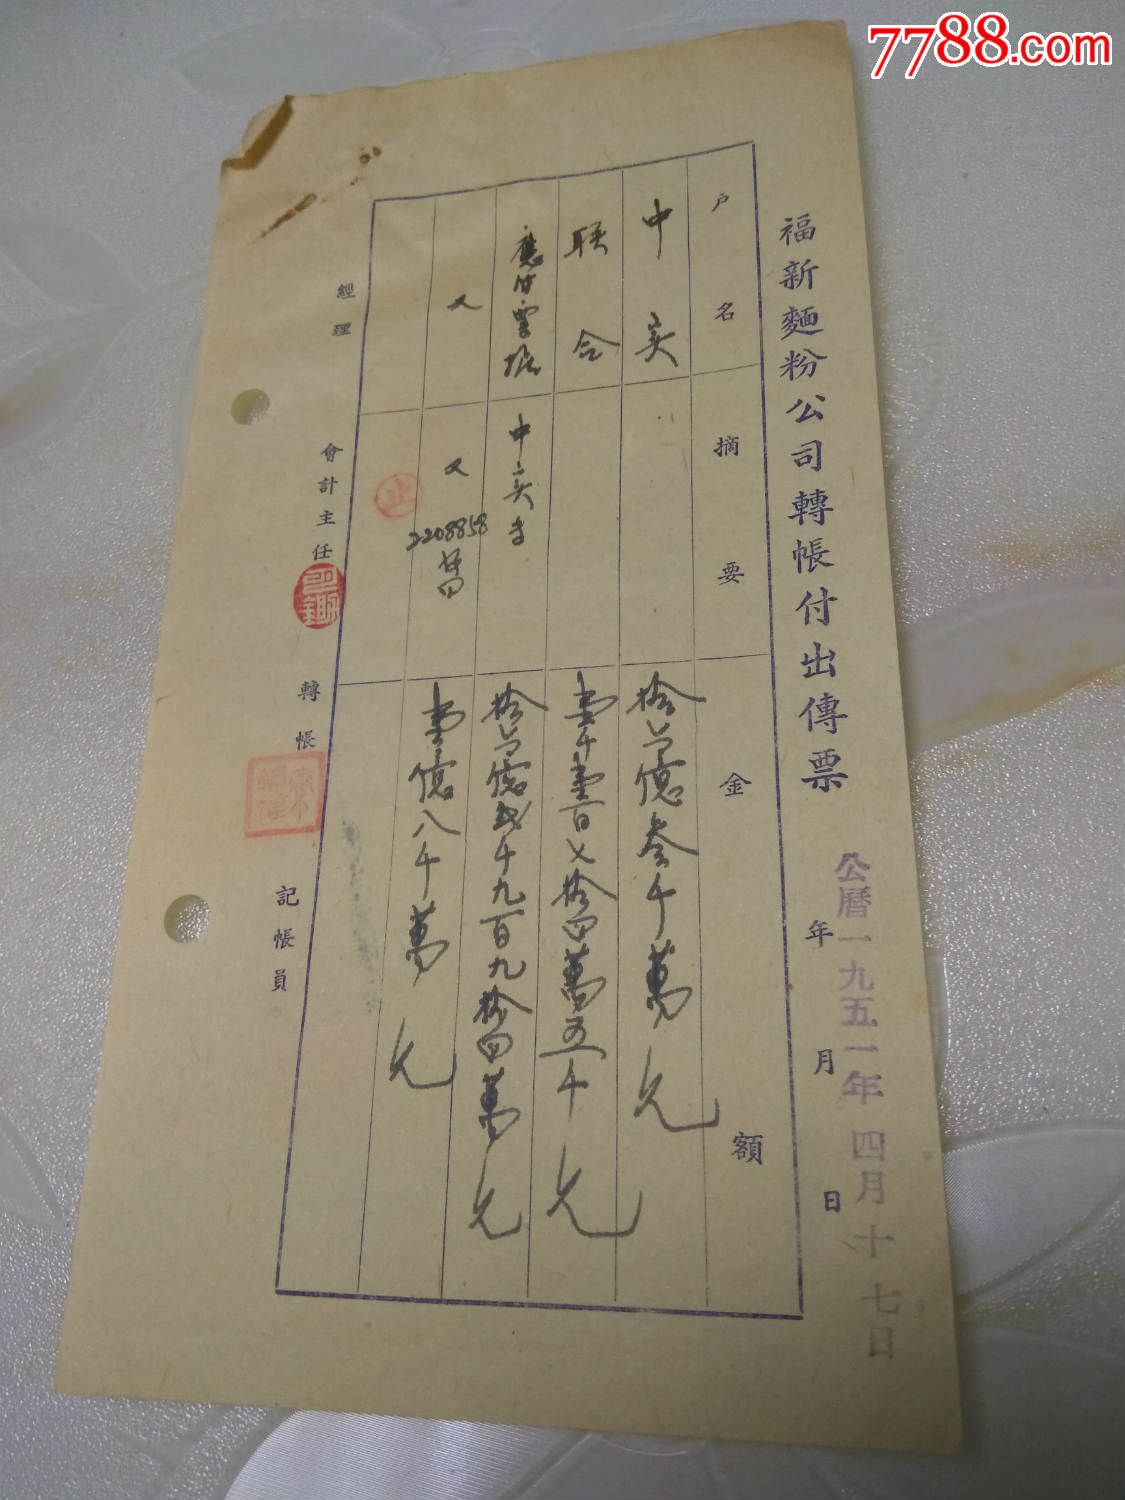 7788.com
福新麵粉公司轉帳付出傳票
年 月 日
公曆一九五一年 四月十七日
戶名 摘要 金額
中实 拾 億叁千萬元
联合 壹千壹百乂拾四萬五千元
應付票据 中实 拾 億弍千九百九拾四萬元
又 又 2208858 壹億八千萬元
止
經理
會計主任
轉帳
記帳員